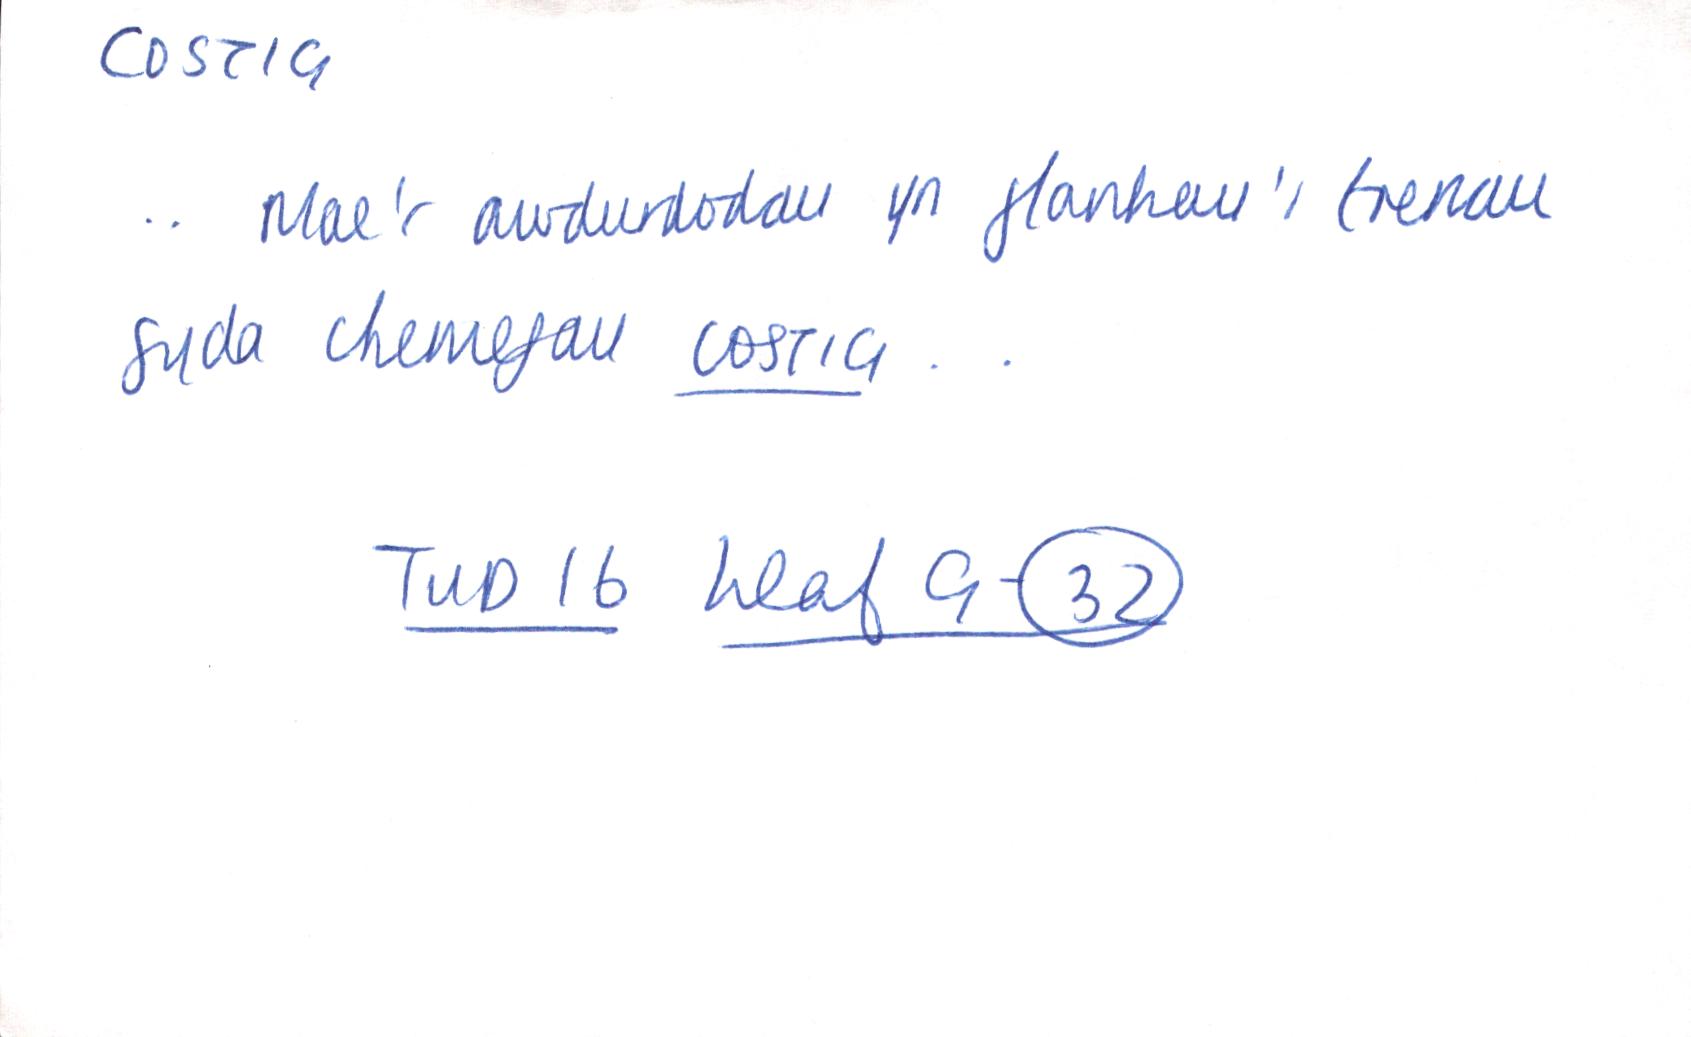 COSTIG
.. Mae'r awdurdodau yn glanhau'r trenau
gyda chemegau COSTIG . .
TUD 16 Heaf G-32